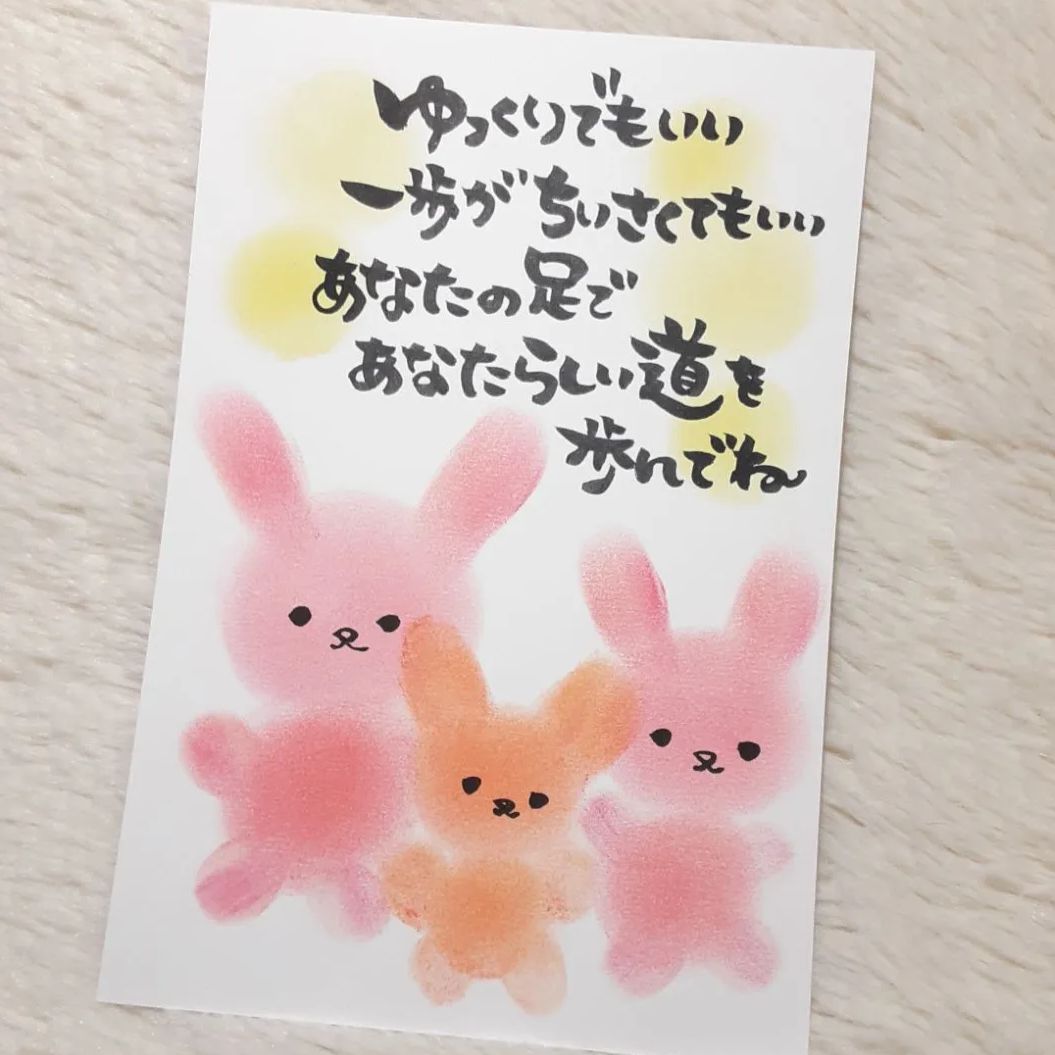 ゆっくりでもいい
一歩がちいさくてもいい
あなたの足で
あなたらしい道を
歩んでね